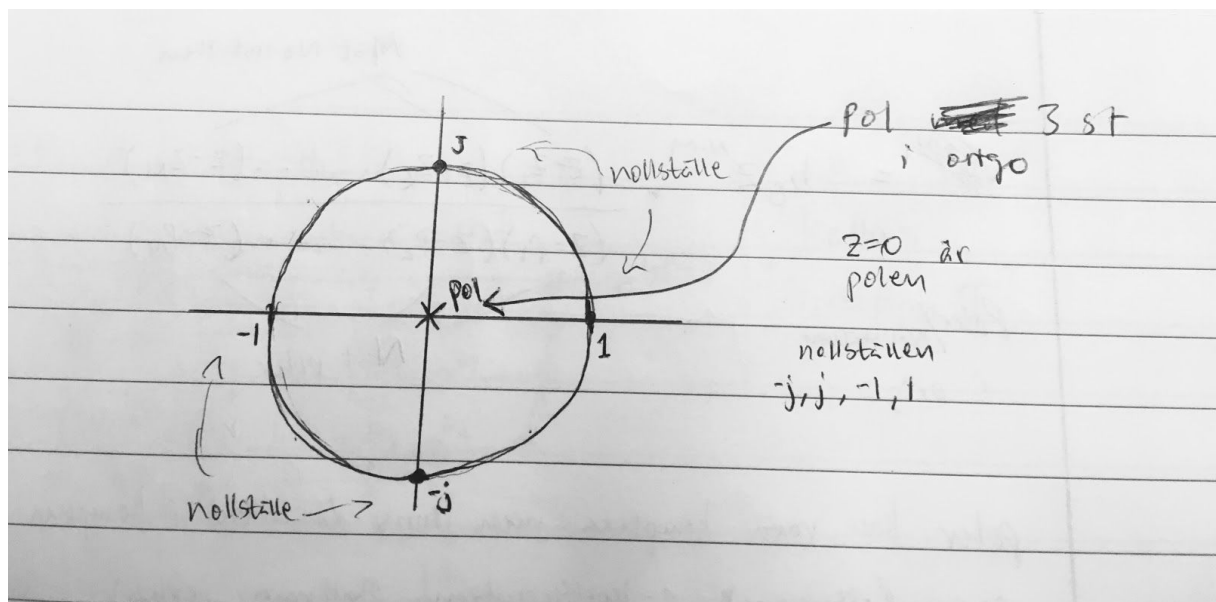 j
nollställe
pol 3 st
i origo
z=0 är
polen
pol
-1
1
nollställen
-j, j, -1, 1
-j
nollställe